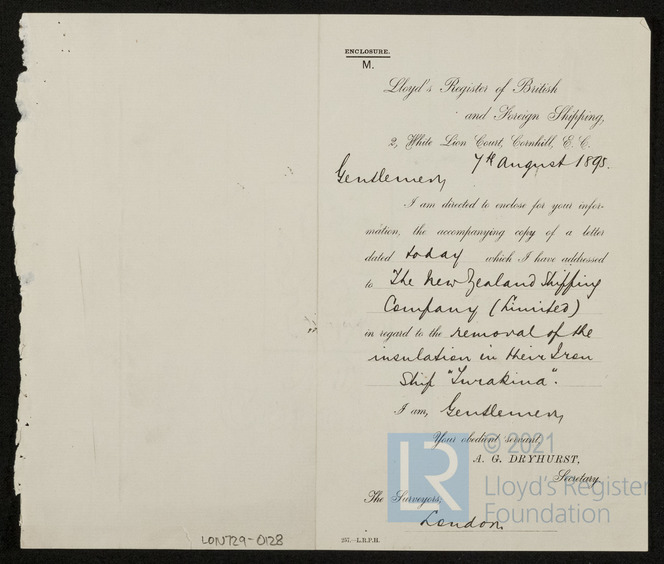 ENCLOSURE.
M.
Lloyd's Register of British
and Foreign Shipping,
2, White Lion Court, Cornhill, E. C.
7th August 1895.
Gentlemen,
I am directed to enclose for your infor-
mation, the accompanying copy of a letter
dated today which I have addressed
to The New Zealand Shipping
Company (Limited)
in regard to the removal of the
insulation in their Iron
Ship "Turakina".
I am, Gentlemen,
Your obedient servant,
A. G. DRYHURST,
Secretary.
The Surveyors,
London.
257.—L.R.P.H.
LON729-0128
LR
© 2021
Lloyd's Register
Foundation